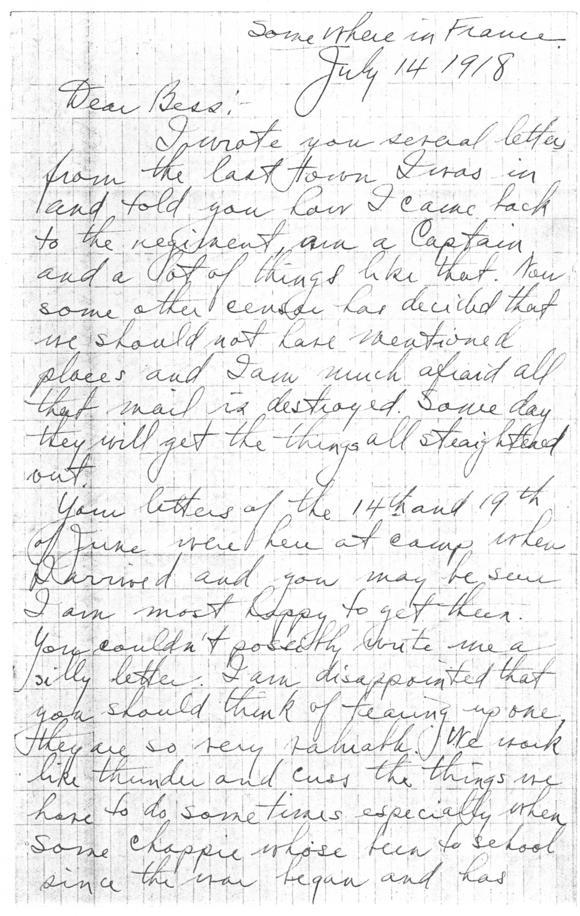 Somewhere in France
July 14 1918
Dear Bess:-
I wrote you several letters
from the last town I was in
and told you how I came back
to the regiment, am a Captain
and a lot of things like that. Now
some other censor has decided that
we should not have mentioned
places and I am much afraid all
that mail is destroyed. Some day
they will get the things all straightened
out.
Your letters of the 14th and 19th
of June were here at camp when
I arrived and you may be sure
I am most happy to get them.
You couldn't possibly write me a
silly letter. I am disappointed that
you should think of tearing up one,
they are so very valuable. We work
like thunder and cuss the things we
have to do sometimes especially when
some chappie whose been to school
since the war began and has